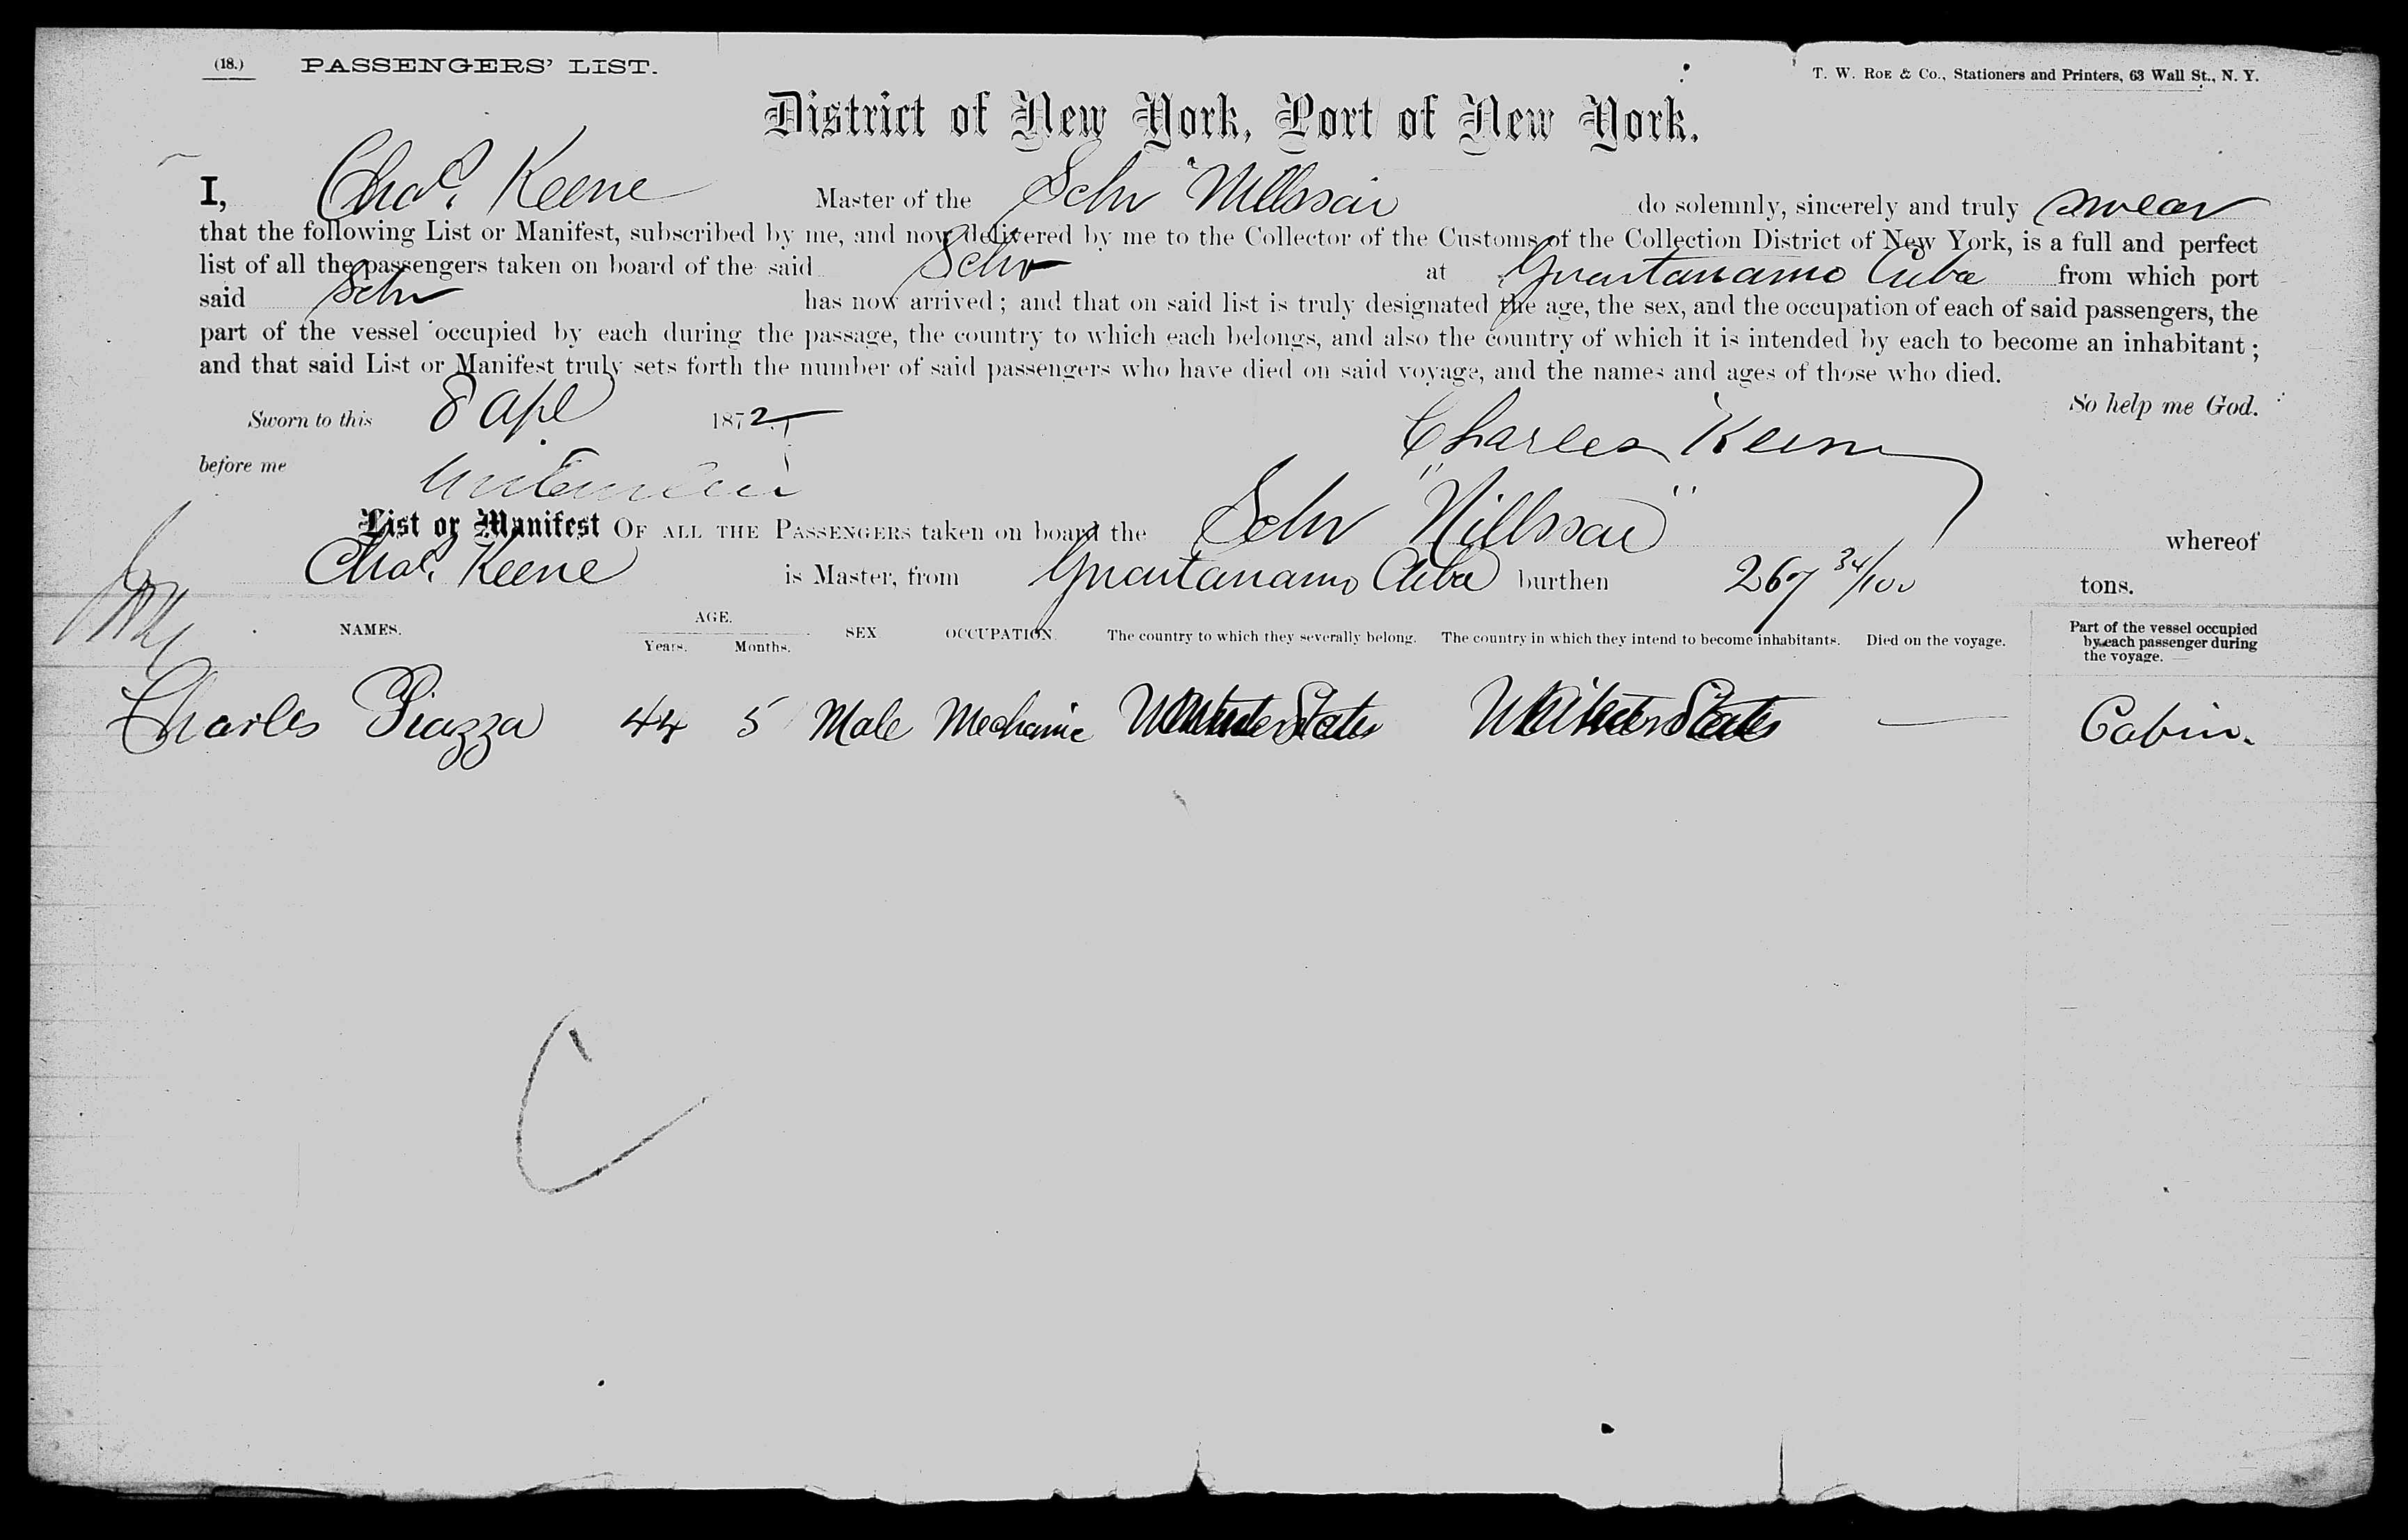 (18.) PASSENGERS' LIST.
T. W. ROE & Co., Stationers and Printers, 63 Wall St., N. Y.
District of New York, Port of New York.
I, Chas. Keene Master of the Schr do solemnly, sincerely and truly swear
that the following List or Manifest, subscribed by me, and now delivered by me to the Collector of the Customs of the Collection District of New York, is a full and perfect
list of all the passengers taken on board of the said Schr at Guantanamo Cuba from which port
said Schr has now arrived; and that on said list is truly designated the age, the sex, and the occupation of each of said passengers, the
part of the vessel occupied by each during the passage, the country to which each belongs, and also the country of which it is intended by each to become an inhabitant;
and that said List or Manifest truly sets forth the number of said passengers who have died on said voyage, and the names and ages of those who died.
So help me God.
Sworn to this 8 Apl 1872
Charles Keene
before me
List or Manifest OF ALL THE PASSENGERS taken on board the Schr whereof
Chas. Keene is Master, from Guantanamo Cuba burthen 267 34/100 tons.
NAMES. AGE. Years. Months. SEX OCCUPATION. The country to which they severally belong. The country in which they intend to become inhabitants. Died on the voyage. Part of the vessel occupied by each passenger during the voyage.
Charles Piazza 44 5 Male Mechanic United States United States — Cabin.